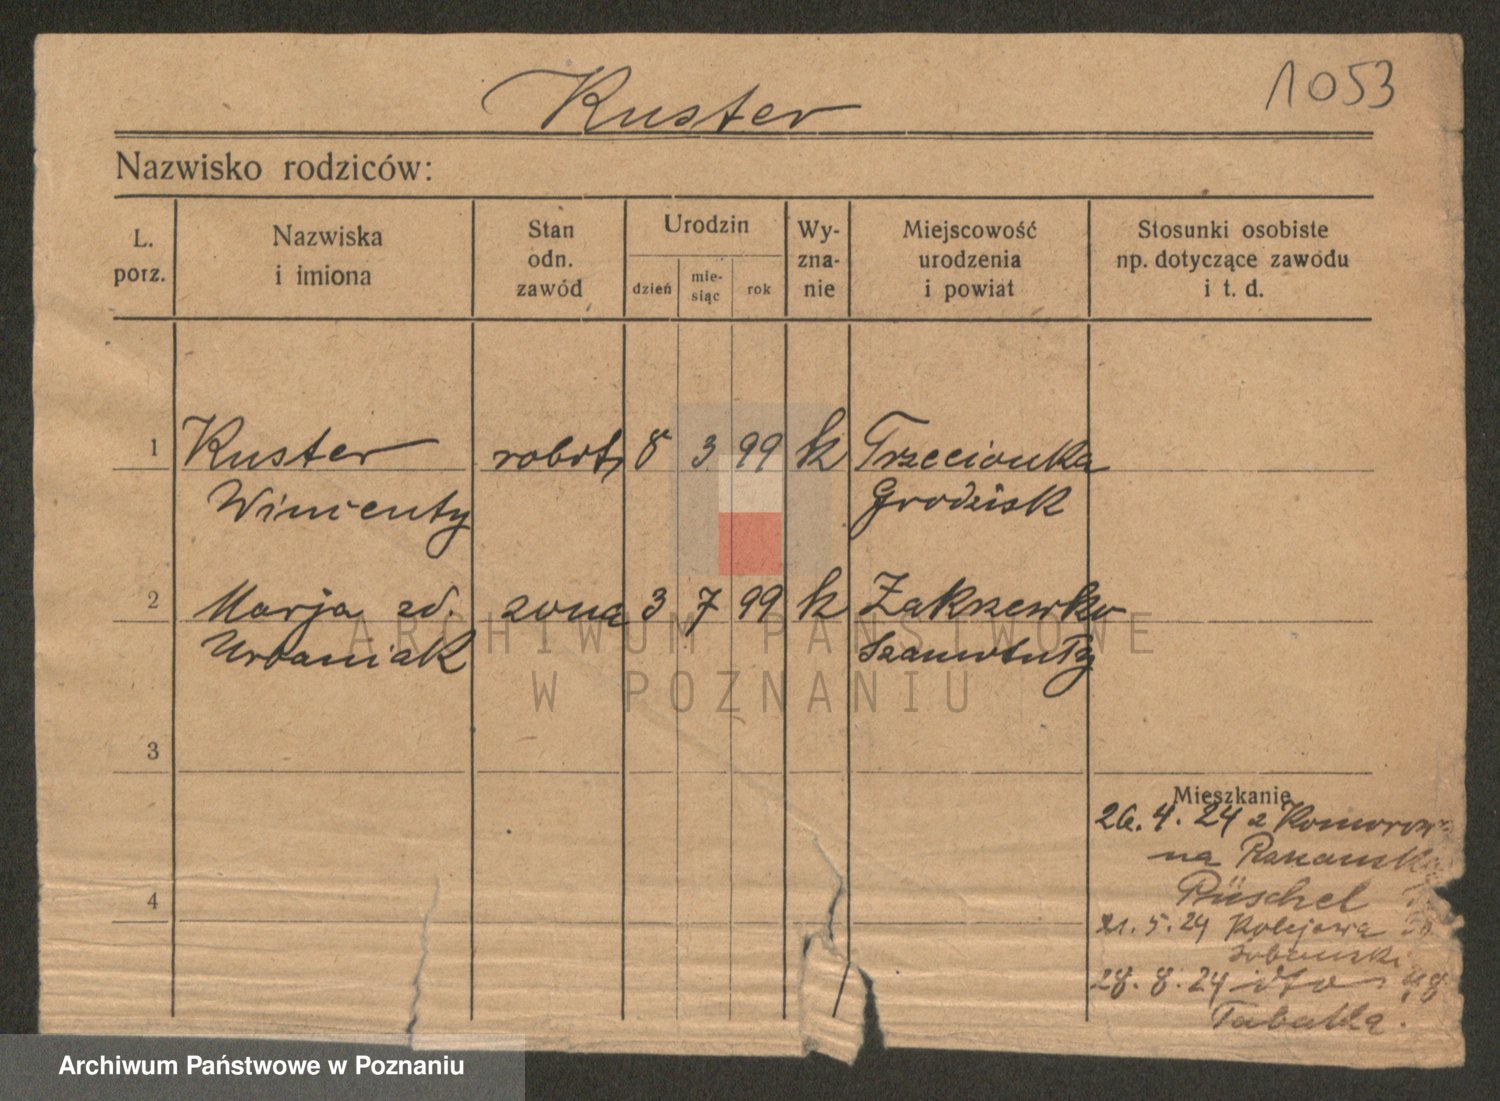 1053
Kuster
Nazwisko rodziców:
L. porz.
Nazwiska i imiona
Stan odn. zawód
Urodzin
dzień
mie-siąc
rok
Wy-zna-nie
Miejscowość urodzenia i powiat
Stosunki osobiste np. dotyczące zawodu i t. d.
1 Kuster robotn 8 3 99 k Trzecionka
Wincenty Grodzisk
2 Marja zd. żona 3 7 99 k Zakrzewko
Urbaniak Szamotuły
3
Mieszkanie
26.4.24 z Komorow
na
4 Püschel
21.5.24 Kolejowa
28.8.24 dto 48
ARCHIWUM PAŃSTWOWE
W POZNANIU
Archiwum Państwowe w Poznaniu